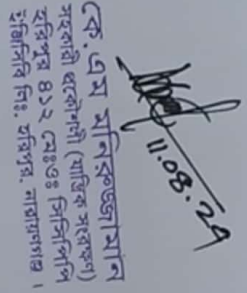 11.08.24
কে. এম মনিরুজ্জামান
সহকারী প্রকৌশলী (যান্ত্রিক সংরক্ষণ)
হরিপুর ৪১২ মেঃওঃ সিসিপিপি
ইজিসিবি লিঃ, হরিপুর, নারায়ণগঞ্জ ।